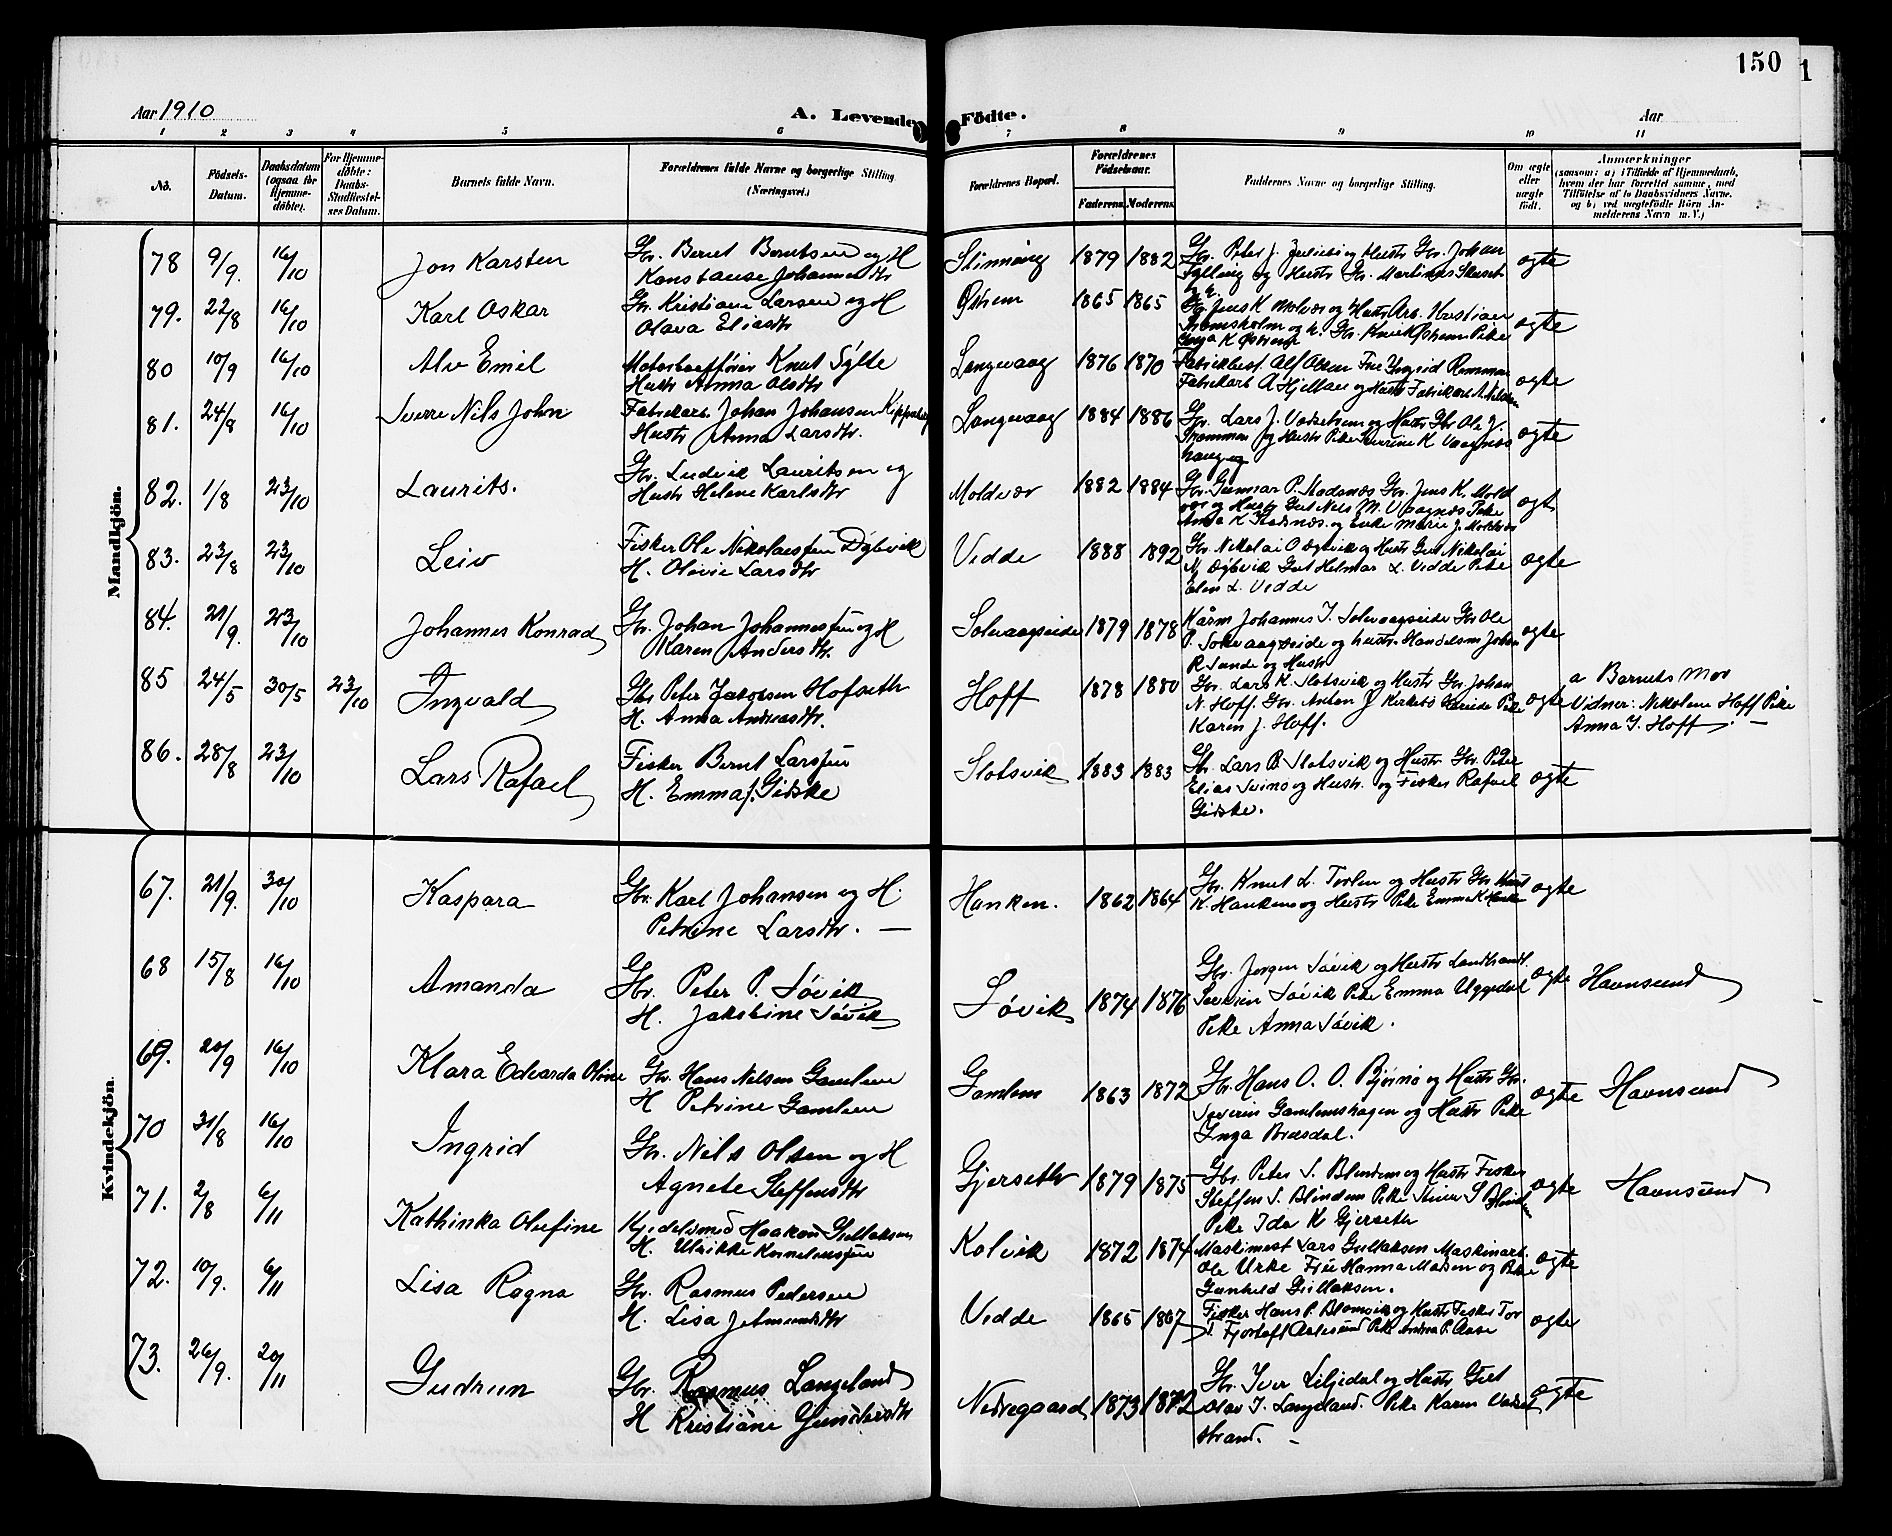 150
1
Aar 1910
A. Levende Födte.
Aar
1 2 3 4 5 6 7 8 9 10 11
No.
Födsels-
Datum.
Daabsdatum
(ogsaa for
Hjemme-
döbte).
For Hjemme-
döbte:
Daabs-
Stadfæstel-
ses Datum.
Barnets fulde Navn.
Forældrenes fulde Navne og borgerlige Stilling
(Næringsvei.)
Forældrenes Bopæl.
Forældrenes
Födselsaar.
Faderens. Moderens.
Faddernes Navne og borgerlige Stilling.
Om ægte
eller
uægte
födt.
Anmærkninger
(saasom: a) i Tilfælde af Hjemmedaab,
hvem der har forrettet samme, med
Tilföielse af to Daabsvidners Navne.
og b) ved uægtefödte Börn An-
melderens Navn m. V.)
Mandkjön.
78 9/9. 16/10 Jon Karsten
Gbr. Bernt Berntsen og H
Konstanse Johannesdtr
1879 1882
Gbr. Peter J. og Hustr Gbr. Johan
og Hustr Gbr. Martinus
ægte
79. 22/8 16/10 Karl Oskar
Gbr. Kristian Larsen og H
Olava Eliasdtr
1865 1865
Gbr Jens K Molvær og Hustr Arb. Kristian
og Gbr. Pike
ægte
80 10/9 16/10 Alv Emil
Motorbaatfører Knut Sylte
Hustr Anna Olsdtr
Langevaag 1876 1870
Fabrikbest. Alf Olsen Frue Ingrid
Fabrikarb A Hjellen og Hustr Fabrikarb
ægte
81. 24/8 16/10 Sverre Nils John
Fabrikarb Johan Johansen
Hustr Anna Larsdtr.
Langevaag 1884 1886
Gbr. Lars J. og Hustr Gbr Ole J.
og Hustr Pike K
ægte
82. 1/8 23/10 Laurits.
Gbr. Ludvik Lauritsen og
Hustr Helene Karlsdtr
Moldvær 1882 1884
Gbr. Gunnar P. Gbr. Jens K. Mold
vær og Hustr Gut Nils M. Pike
Anna K og Enke Marie J. Moldvær
ægt
83. 23/8 23/10 Leiv
Fisker Ole Nikolaessen Dybvik
H. Olivie Larsdtr
Vedde 1888 1892
Gbr. Nikolai O Dybvik og Hustr Gut Nikolai
N Dybvik Gut Helmar L. Vedde Pike
Elen L. Vedde
ægte
84. 21/9. 23/10 Johannes Konrad
Gbr. Johan Johannessen og H
Karen Andersdtr.
Solevaagseide 1879 1878
Johannes I. Solevaagseide Gbr Ole
P. Solevaagseide og hustr. Handelsm Johan
R Sunde og Hustr
ægte
85 24/5 30/5 23/10 Ingvald
Gbr Peter Jakobsen Hofseth
H. Anna Andreasdtr.
Hoff 1878 1880
Gbr. Lars K. Slotsvik og Hustr Gbr. Johan
N. Hoff. Gbr. Anton J Pike
Karen J. Hoff.
ægte
a Barnets Mor
Vidner: Nikoline Hoff Pike
Anna I. Hoff. —
86. 28/8 23/10 Lars Rafael
Fisker Bernt Larssen
H. Emma J. Giske
Slotsvik 1883 1883
Gbr. Lars B. Slotsvik og Hustr Gbr. Peter
Elias og Hustr. og Fisker Rafael
Giske.
ægte
Kvindekjön.
67. 21/9. 30/10 Kaspara
Gbr. Karl Johansen og H.
Petrine Larsdtr. —
Hanken. 1862 1864
Gbr. Knut L. og Hustr Gbr Knut
K. Hanken og Hustr Pike Emma K Hanken
ægte
68 15/8 16/10 Amanda
Gbr. Peter P. Søvik
H. Jakobine Søvik
Søvik 1874 1876
Gbr. Jørgen Søvik og Hustr Landhandl.
Severin Søvik Pike Emma Uggedal
Pike Anna Søvik.
ægte Havnsund
69. 20/9 16/10 Klara Edvarda Oline
Gbr. Hans Nilsen Gamlem
H Petrine Gamlem
Gamlem 1863 1872
Gbr. Hans O. O. Bjørnø og Hustr Gbr.
Severin Gamlemshagen og Hustr Pike
Inga Brasdal.
ægte Havnsund
70 31/8 16/10 Ingrid
Gbr. Nils Olsen og H
Agnete Steffensdtr
Gjerseth 1879 1875
Gbr. Peter S. Blindem og Hustr Fisker
Steffen S. Blindem Pike S Blindem
Pike Ida K Gjerseth
ægte Havnsund
71. 2/8 6/11 Kathinka Olufine
Kjedelsmed Haakon Gullaksen
H. Ulrikke Korneliussen
Kolvik 1872 1874
Maskinest Lars Gullaksen Maskinarb.
Ole Urke Frue Hanna Madsen og Pike
Gunhild Gullaksen.
ægte
72. 10/9. 6/11 Lisa Ragna
Gbr. Rasmus Pedersen
H. Lisa Jetmundsdtr
Vedde 1865 1867
Fisker Hans P. Blomvik og Hustr Fisker Tor
Fjørtoft Aalesund Pike Andrea P. Aase
ægte
73. 26/9. 20/11 Gudrun
Gbr. Rasmus Langeland
H Kristiane Gundersdtr
Nedregaard 1873 1872
Gbr. Iver Liljedal og Hustr Gut
Olav I. Langeland. Pike Karen
strand. —
ægte